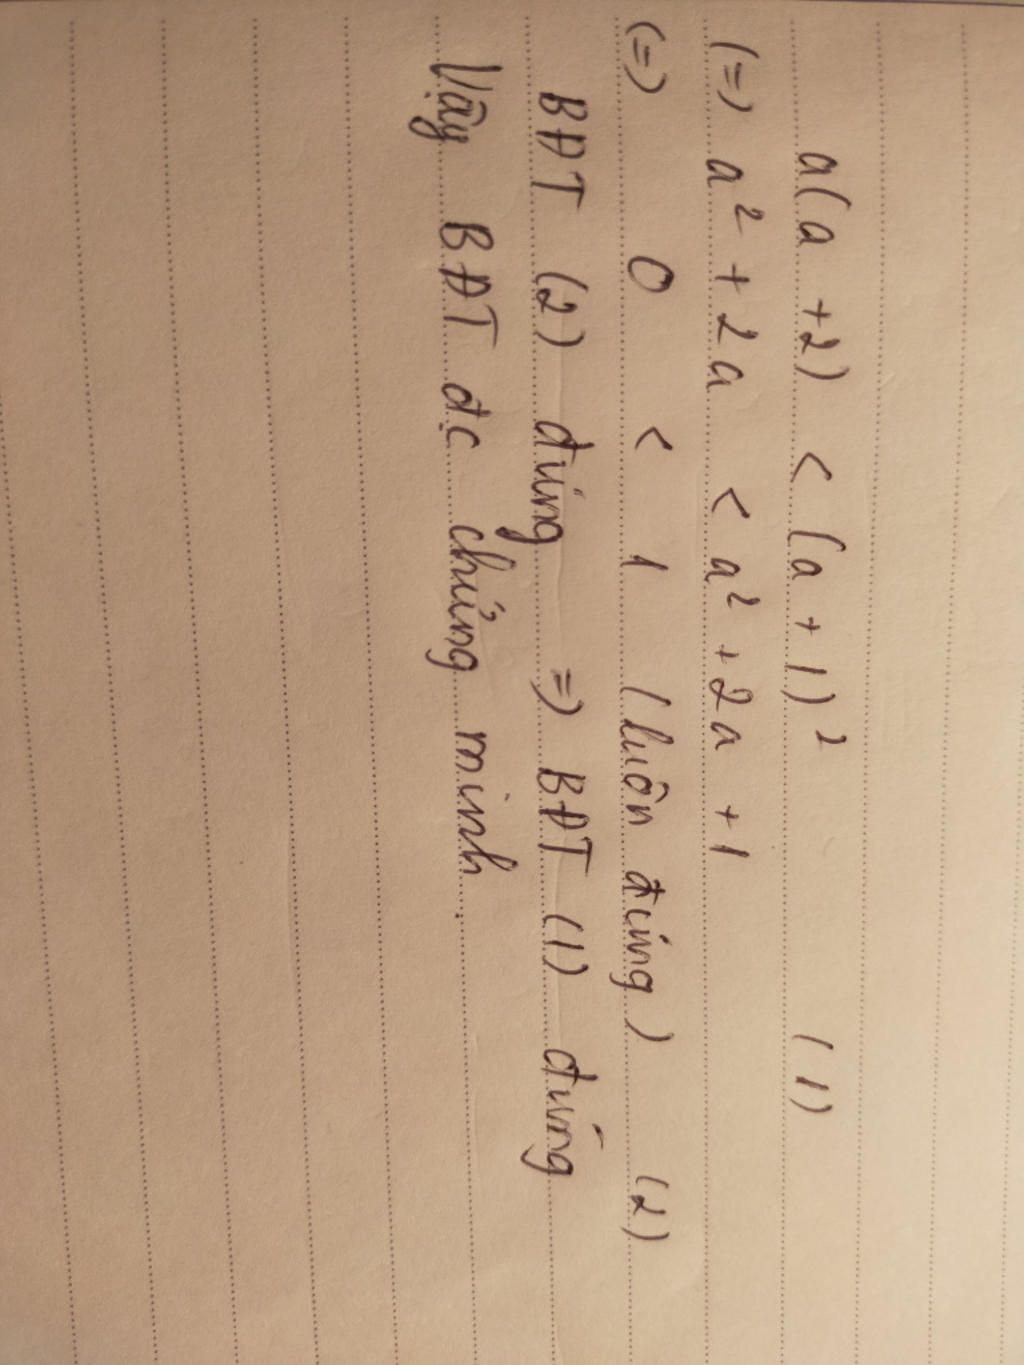 a(a +2) < (a+1)² (1)
(=) a² + 2a < a² + 2a + 1
(=) 0 < 1 (luôn đúng) (2)
BĐT (2) đúng => BĐT (1) đúng
Vậy BĐT đ.c chứng minh.